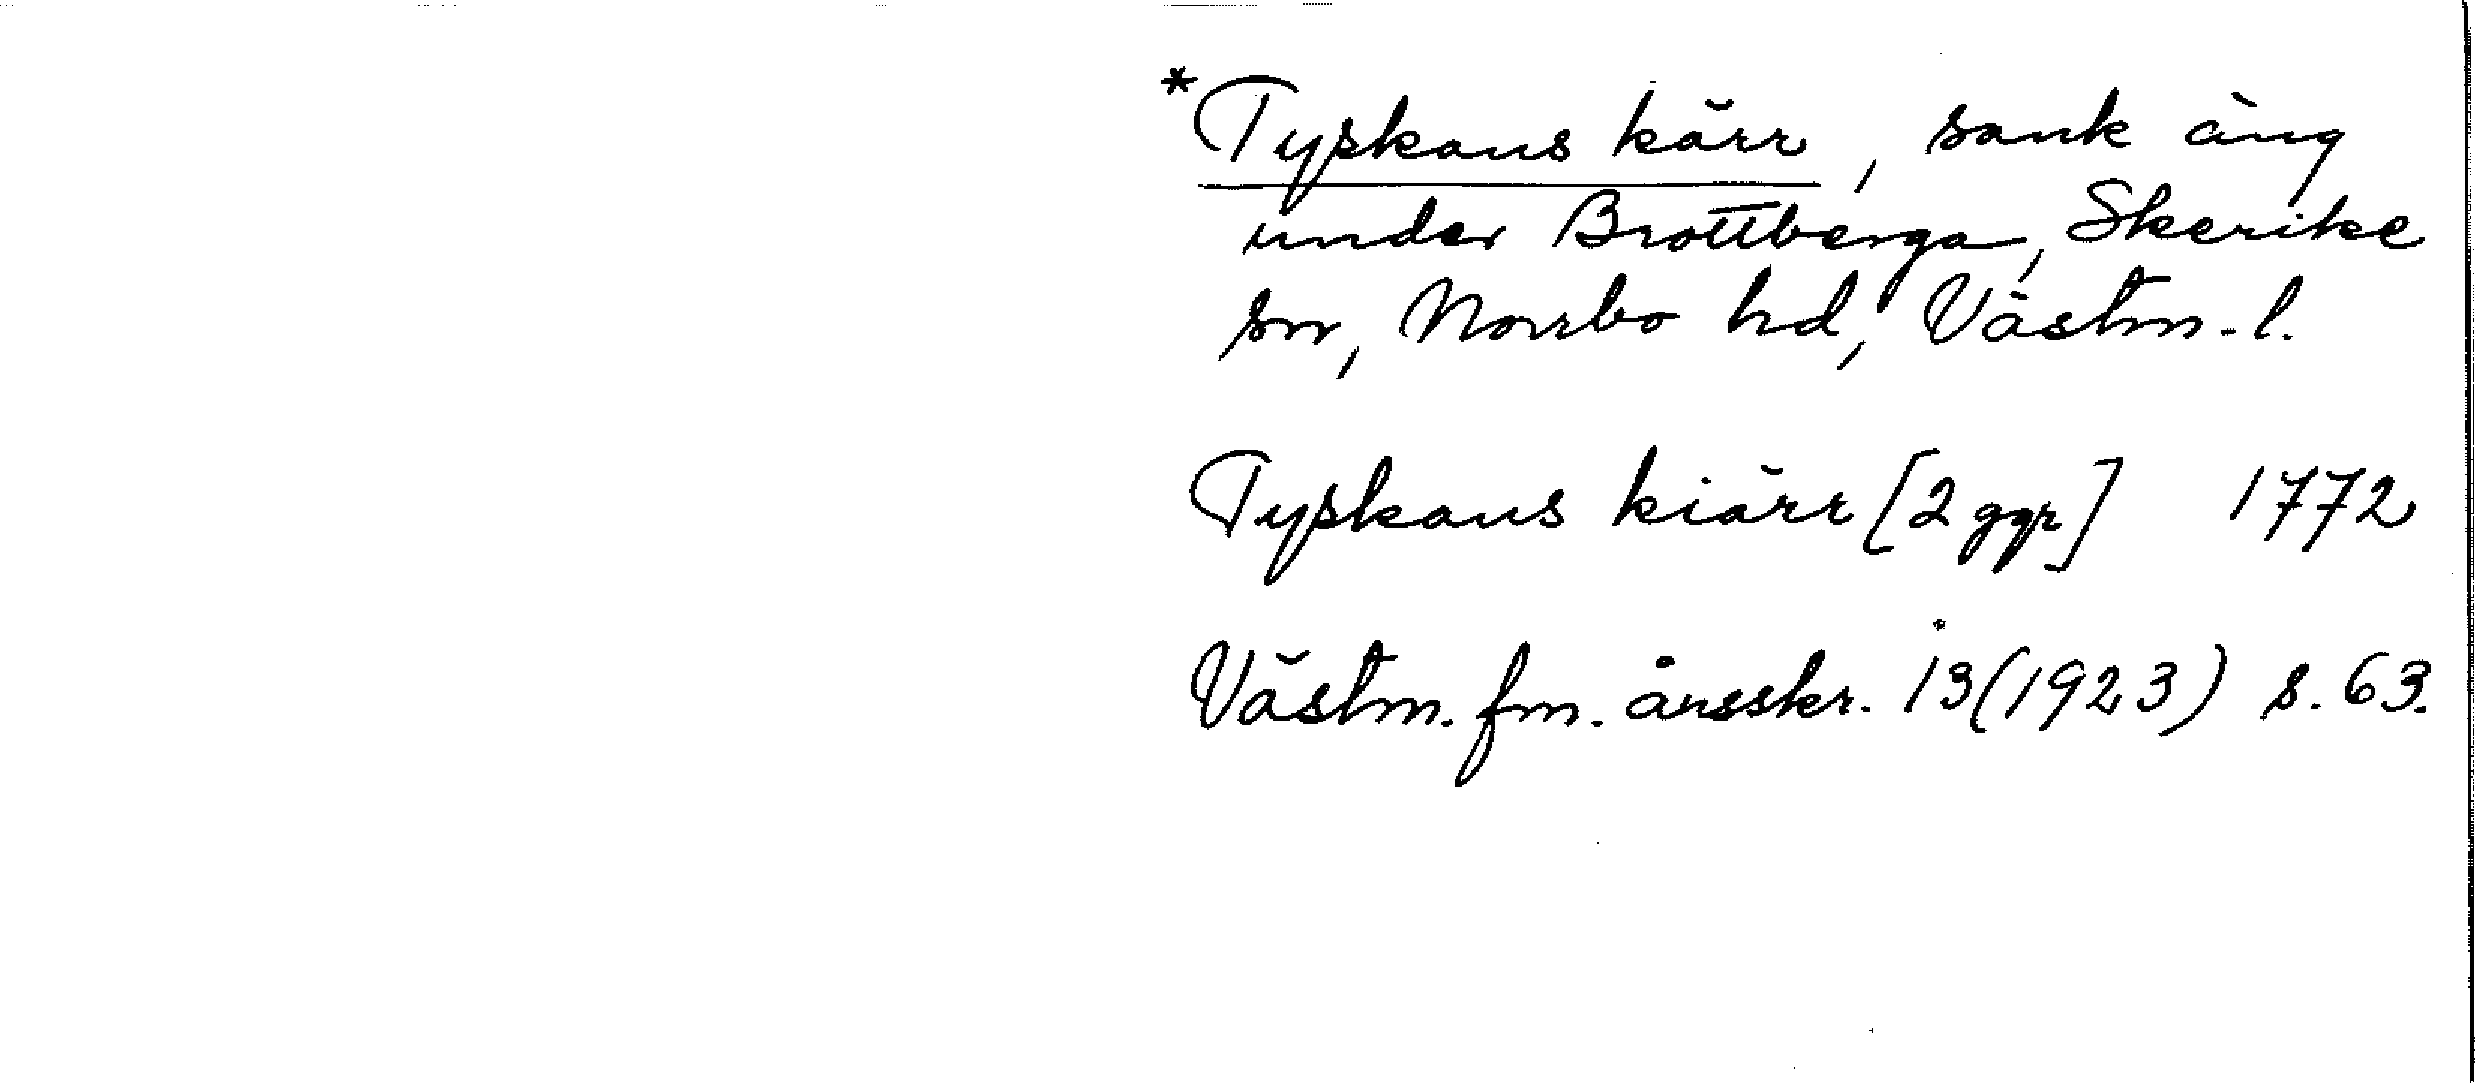 *Tyskans kärr, sank äng
under Brottberga, Skerike
sn, Norrbo hd, Västm-l.
Tyskans kiärr [2 ggr] 1772
Västm. fm. årsskr. 13 (1923) s. 63.